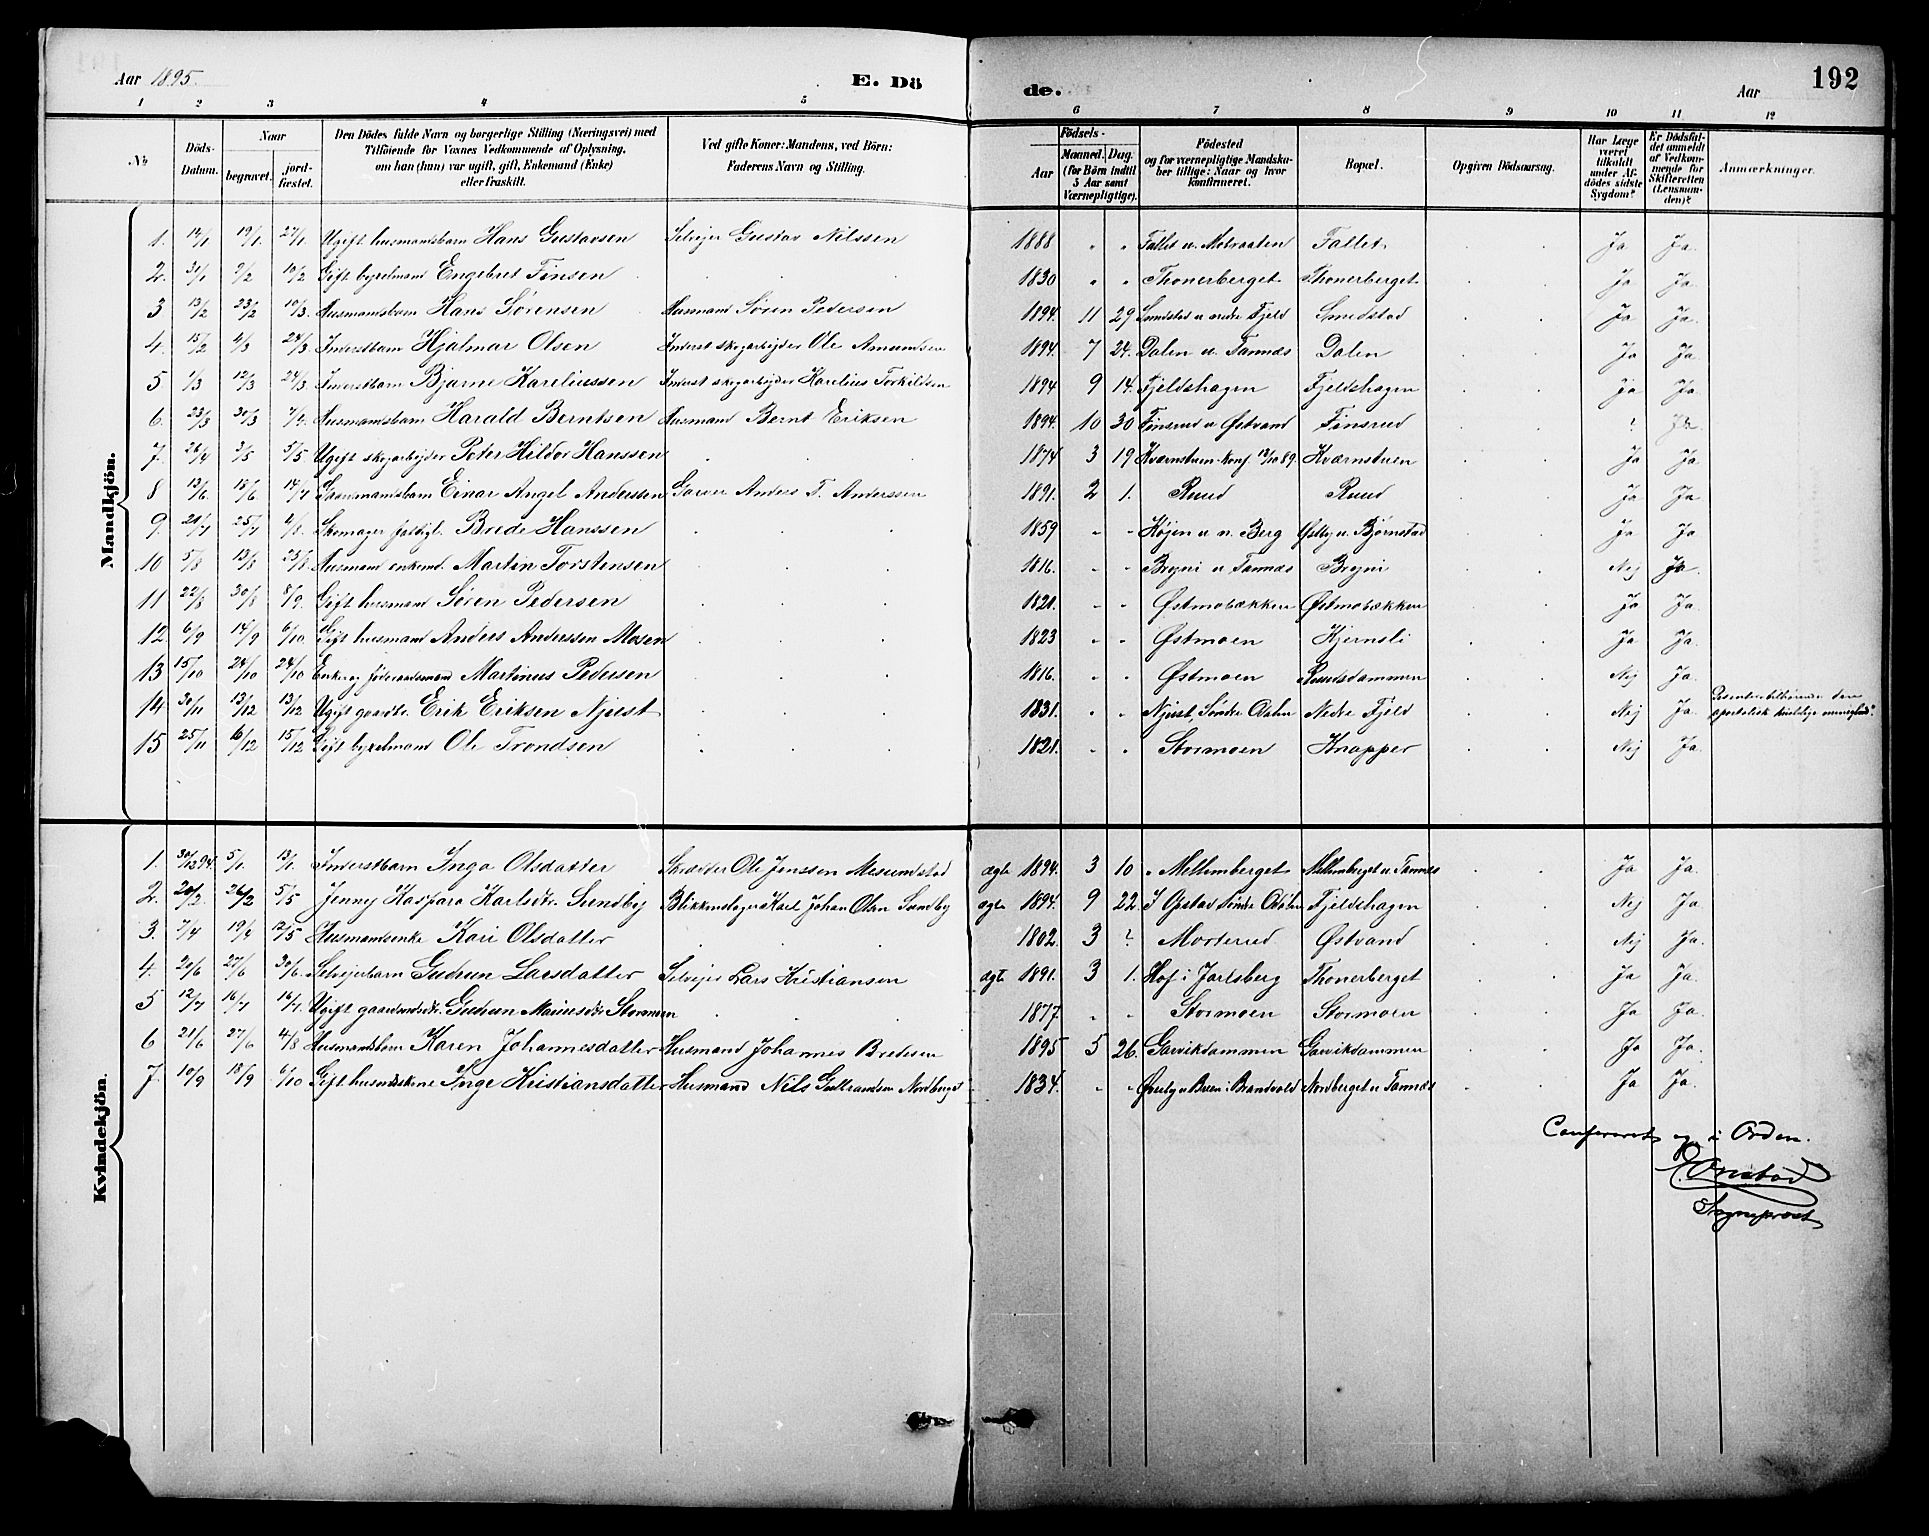 Aar 1895. E. Dö
de. Aar 192
1 2 3 4 5 6 7 8 9 10 11 12
No Döds-Datum. Naar begravet. jord-fæstet. Den Dödes fulde Navn og borgerlige Stilling (Næringsvei) med Tilföiende for Voxnes Vedkommende af Oplysning, om han (hun) var ugift, gift, Enkemand (Enke) eller fraskilt. Ved gifte Koner: Mandens, ved Börn: Faderens Navn og Stilling. Födsels- Aar Maaned. Dag. (for Börn indtil 5 Aar samt Værnepligtige). Födested og for værnepligtige Mandska-ber tillige: Naar og hvor konfirmeret. Bopæl. Opgiven Dödsaarsag. Har Læge været tilkaldt under Af-dödes sidste Sygdom? Er Dödsfal-det anmeldt af Vedkom-mende for Skifteretten (Lensman-den)? Anmærkninger.
Mandkjön.
1. 14/1 19/1 27/1 Ugift husmandsbarn Hans Gustavsen Selvejer Gustav Nilssen 1888 " " Fallet u. Fallet Ja Ja.
2. 31/1 9/2 10/2 Gift bygselmand Engebret Finsen 1830 " " Thonerberget Thonerberget Ja Ja.
3 13/2 23/2 10/3 Husmandsbarn Hans Sørensen Husmand Søren Pedersen 1894. 11 29 Smedstad u. nedre Fjeld Smedstad Ja Ja.
4. 15/2 4/3 24/3 Inderstbarn Hjalmar Olsen Inderst skogarbejder Ole Amundsen 1894. 7 24. Dalen u. Tannæs Dalen Ja Ja.
5 1/3 12/3 24/3 Inderstbarn Bjarne Kareliussen Inderst skogarbejder Karelius Torkildsen 1894 9 14. Fjeldshagen Fjeldshagen Ja Ja.
6. 23/3 30/3 7/4 Husmandsbarn Harald Berntsen Husmand Bernt Eriksen 1894. 10 30 Finsrud u Østvand Finsrud Ja
7. 26/4 3/5 5/5 Ugift skogarbejder Peter Hildor Hanssen 1874 3 19 Kværnstuen konf. 89. Kværnstuen Ja Ja
8 13/6 18/6 14/7 Einar Angel Anderssen Garver Anders T. Anderssen 1891. 2 1. Ruud Ruud Ja Ja
9. 21/7 25/7 4/8 Skomager fattigl. Brede Hanssen 1859 " " Højen u. n. Berg Østby u. Bjørnstad Ja Ja
10 5/8 13/8 25/8 Husmand enkemd. Martin Torstensen 1816. " " Bryni u Tannæs Bryni Nej Ja.
11 22/8 30/8 8/9 Gift husmand Søren Pedersen 1821. " " Østmobækken Østmobækken Ja Ja.
12 6/9 14/9 6/10 Gift husmand Anders Anderssen Mosen 1823 " " Østmoen Kjernsli Ja Ja.
13 15/10 24/10 24/10 Enkem. føderaadsmand Martinus Pedersen 1816. " " Østmoen Ruudsdammen Nej Ja.
14 30/11 13/12 13/12 Ugift gaardbr. Erik Eriksen Njust 1831. " " Njust, Søndre Odalen Nedre Fjeld Nej Ja. Dissenter tilhørende den apostolisk
15 25/11 16/12 15/12 Gift bygselmand Ole Trondsen 1821. " " Stormoen Knapper Nej Ja.
Kvindekjön.
1. 30/12 94. 5/1 13/1 Inderstbarn Inga Olsdatter Skrædder Ole Jenssen Mesundstad ægte 1894. 3 10 Mellemberget Mellemberget u. Tannæs Ja Ja.
2. 20/2 26/2 5/5 Jenny Kaspara Karlsdtr. Sundby Blikkenslager Karl Johan Olsen Sundby ægte 1894. 9 22. I Opstad Søndre Odalen Fjeldshagen Nej Ja.
3. 7/4 19/4 12/5 Husmandsenke Kari Olsdatter 1802. 3 ? Morterud Østvand Nej Ja.
4. 20/6 27/6 30/6 Selvejerbarn Gudrun Larsdatter Selvejer Lars Kristiansen ægte 1891. 3 1. Hof i Jarlsberg Thonerberget Ja Ja.
5 12/7 16/7 16/7 Ugift Gudrun Mariusdtr Stormoen 1877. " " Stormoen Stormoen Ja Ja.
6 21/6 27/6 4/8 Husmandsbarn Karen Johannesdatter Husmand Johannes Bredesen 1895 5 26. Garvikdammen Garvikdammen Ja Ja.
7. 10/9 18/9 6/10 Gift husmandskone Inge Kristiansdatter Husmand Nils Gulbrandsen Nordberget 1834. " " Øverby u Buen i Brandvold Nordberget u. Tannæs Ja Ja.
Confereret og i Orden.
Onstad
Sogneprest